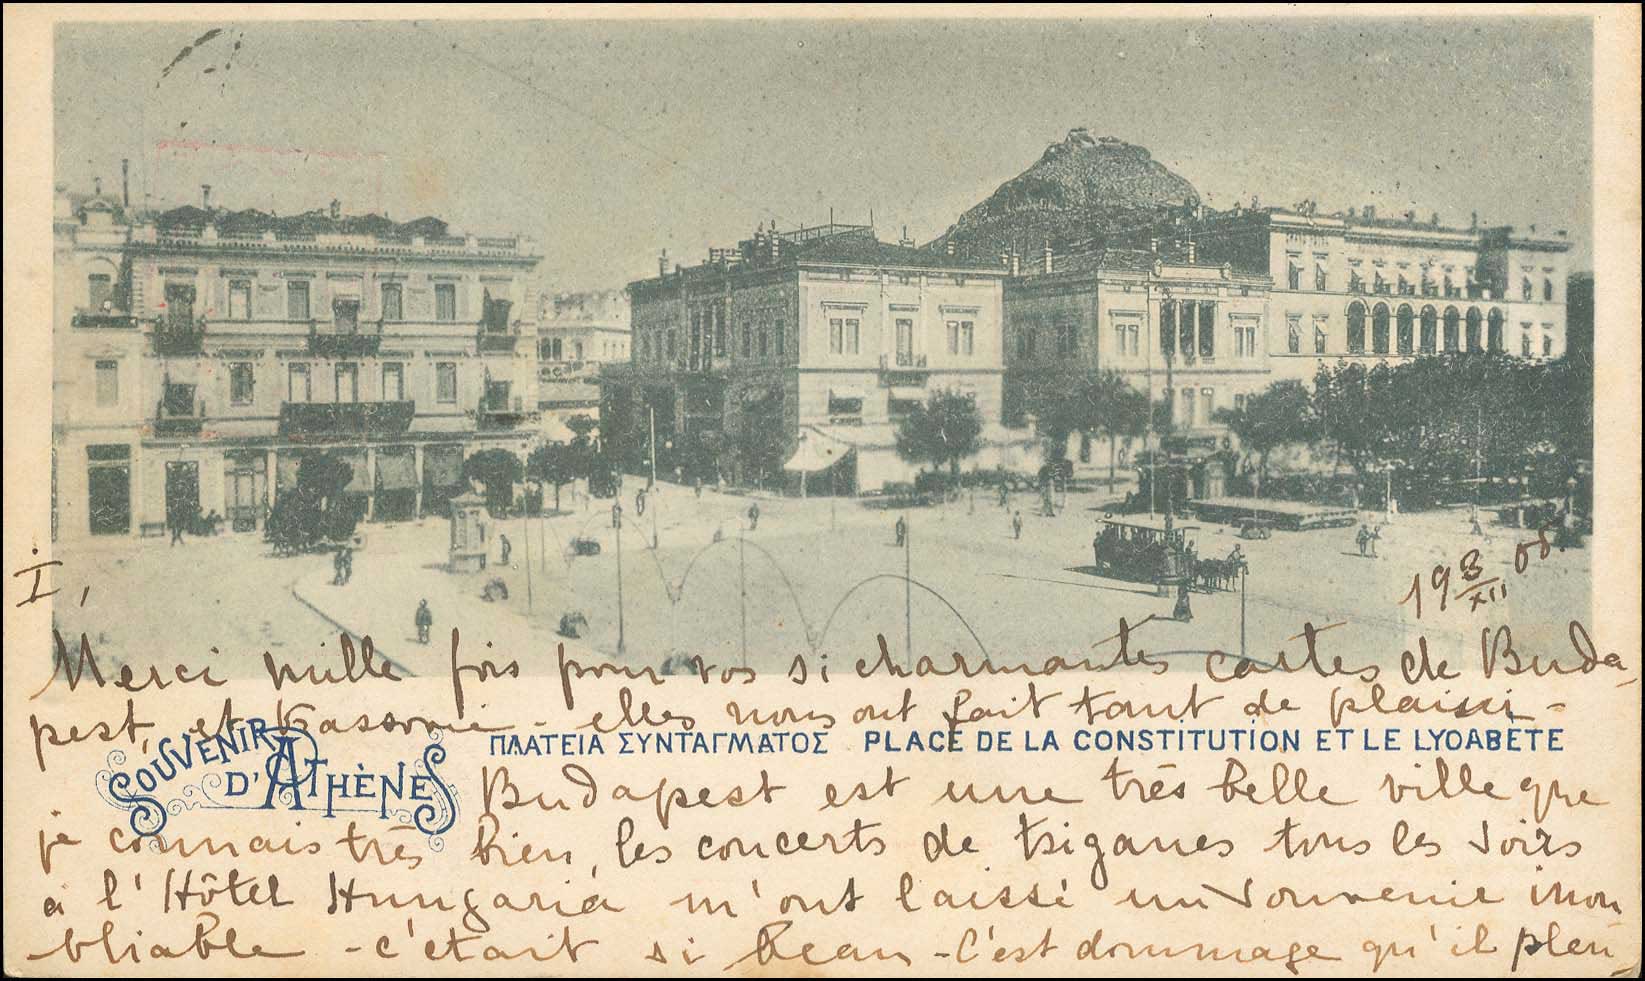 I,
19 8/XII 00.
Merci mille fois pour vos si charmantes cartes de Buda
pest, et - elles nous ont fait tant de plaisir -
SOUVENIR
D'ATHÈNES
ΠΛΑΤΕΙΑ ΣΥΝΤΑΓΜΑΤΟΣ PLACE DE LA CONSTITUTION ET LE LYOABÈTE
Budapest est une très belle ville que
je connais très bien, les concerts de tsiganes tous les soirs
à l'Hôtel Hungaria m'ont laissé un souvenir inou
bliable - c'était si beau - C'est dommage qu'il pleu